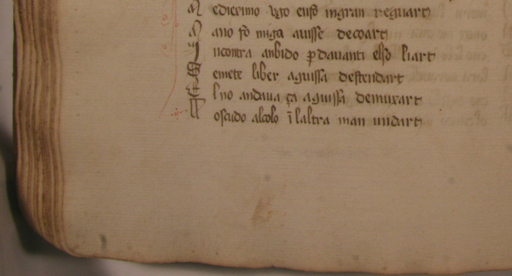 M edesimo ugo ensō ingran reguart
M ano fo miga avisse decoart
I ncontra anbido p davanti elso liart
S emete liber aguissa destendart
E lno andava ça aguissa demuxart
 oscudo alcolo ī laltra man undart